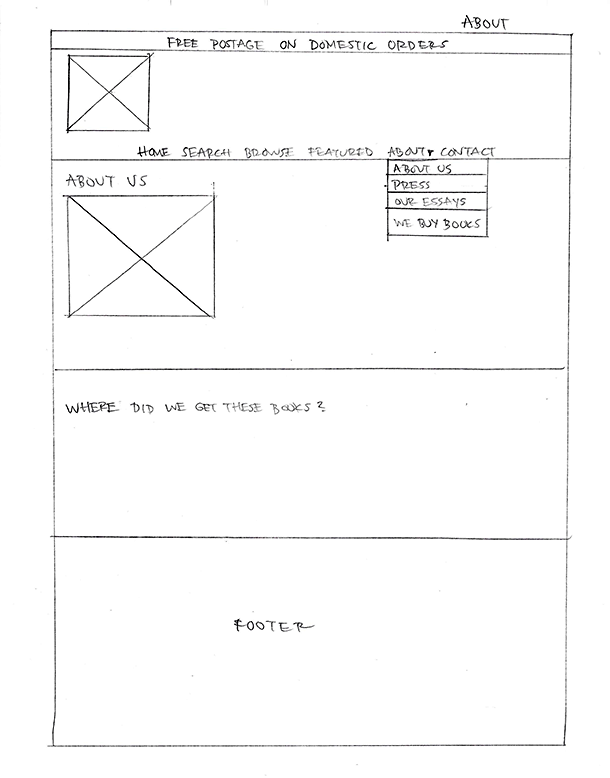 ABOUT
FREE POSTAGE ON DOMESTIC ORDERS
HOME SEARCH BROWSE FEATURED ABOUT▾ CONTACT
ABOUT US
PRESS
OUR ESSAYS
WE BUY BOOKS
ABOUT US
WHERE DID WE GET THESE BOOKS?
FOOTER